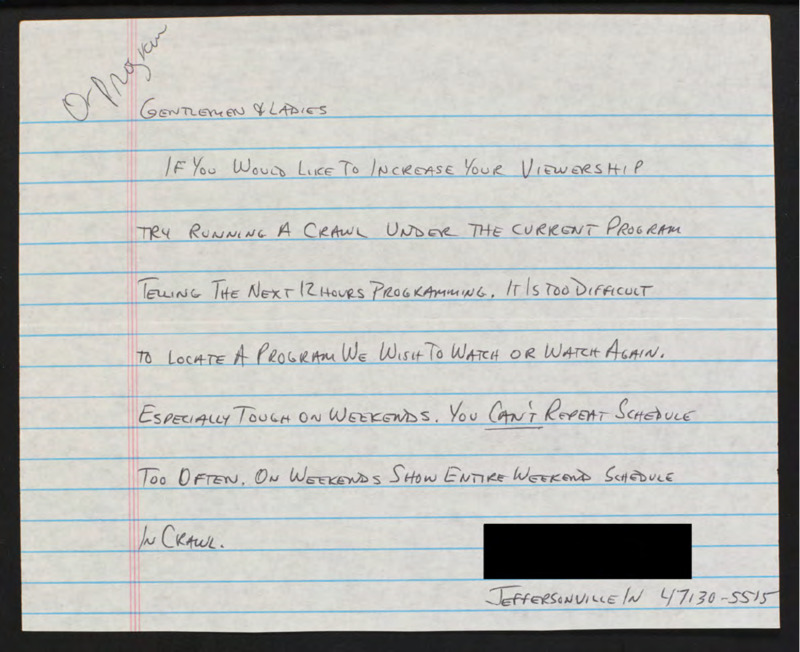 On Program
GENTLEMEN & LADIES
IF YOU WOULD LIKE TO INCREASE YOUR VIEWERSHIP
TRY RUNNING A CRAWL UNDER THE CURRENT PROGRAM
TELLING THE NEXT 12 HOURS PROGRAMMING. IT IS TOO DIFFICULT
TO LOCATE A PROGRAM WE WISH TO WATCH OR WATCH AGAIN.
ESPECIALLY TOUGH ON WEEKENDS. YOU CAN'T REPEAT SCHEDULE
TOO OFTEN. ON WEEKENDS SHOW ENTIRE WEEKEND SCHEDULE
IN CRAWL.
JEFFERSONVILLE IN 47130-5515